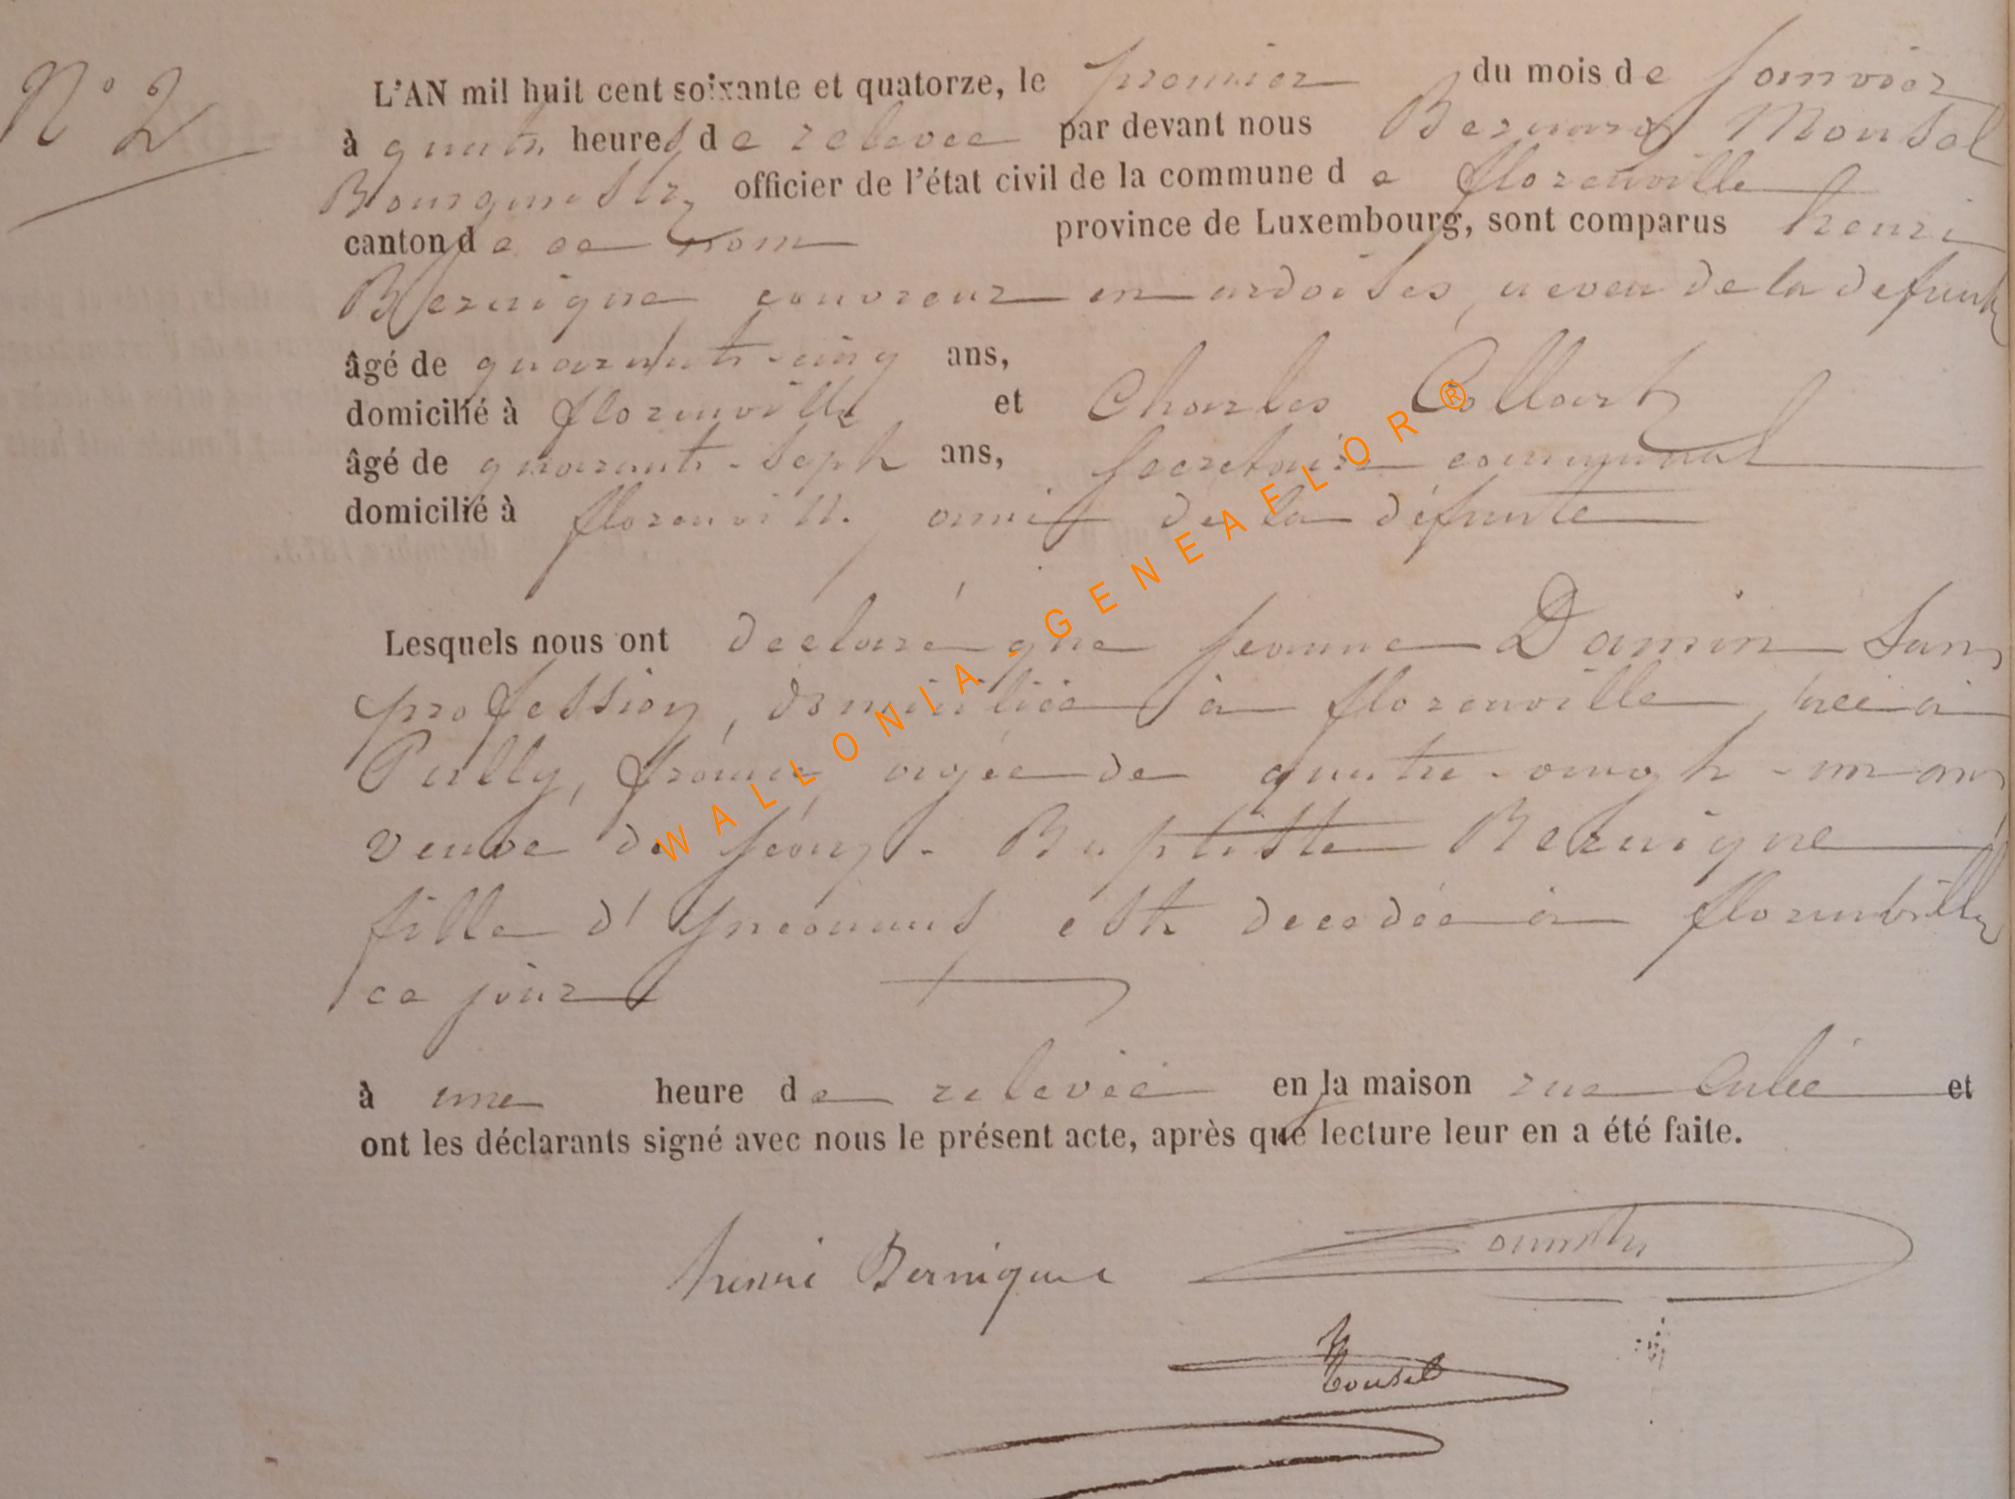 N° 2
L'AN mil huit cent soixante et quatorze, le premier du mois de Janvier
à quatre heures de relevée par devant nous Bernard Mousel
Bourgmestre officier de l'état civil de la commune de florenville
canton de ce nom province de Luxembourg, sont comparus henri
Bernique couvreur en ardoises, neveu de la defunte
âgé de quarante-cinq ans,
domicilié à florenville et Charles Collart
âgé de quarante-sept ans, secretaire communal
domicilié à florenville ami de la défunte
Lesquels nous ont declaré que Jeanne Damin sans
profession, domiciliée à florenville, née à
Puilly, france agée de quatre-vingt-un ans
veuve de Jean-Baptiste Bernique
fille d'Inconnus est decedée à florenville
ce jour
à une heure de relevée en la maison rue et
ont les déclarants signé avec nous le présent acte, après que lecture leur en a été faite.
henri Bernique
Mousel
WALLONIA-GENEAFLOR®